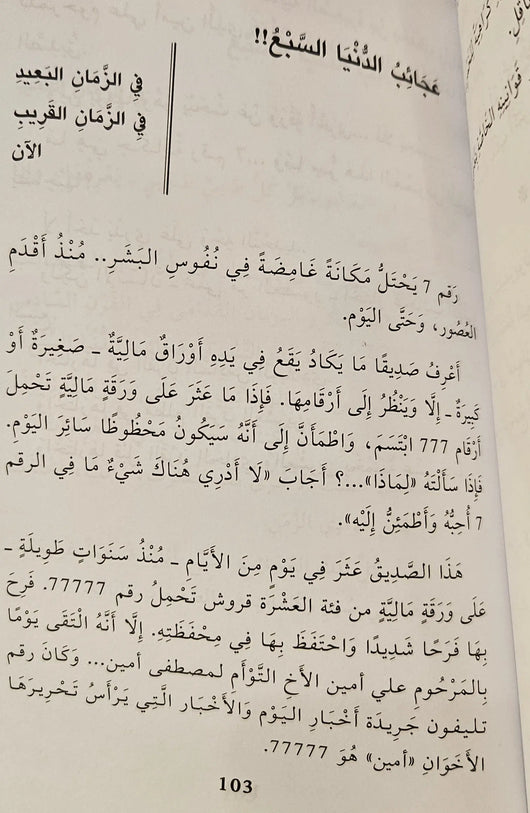 عَجَائِبُ الدُّنْيَا السَّبْعُ!!
فِي الزَّمَانِ البَعِيدِ
فِي الزَّمَانِ القَرِيبِ
الآن
رَقم 7 يَحْتَلُّ مَكَانَةً غَامِضَةً فِي نُفُوسِ البَشَرِ.. مُنْذُ أَقْدَمِ
العُصُور، وَحَتَّى اليَوْم.
أَعْرِفُ صَدِيقًا مَا يَكَادُ يَقَعُ فِي يَدِهِ أَوْرَاقٌ مَالِيَّةٌ ـ صَغِيرَةٌ أَوْ
كَبِيرَةٌ ـ إِلَّا وَيَنْظُرُ إِلَى أَرْقَامِهَا. فَإِذَا مَا عَثَرَ عَلَى وَرَقَةٍ مَالِيَّةٍ تَحْمِلُ
أَرْقَام 777 ابْتَسَمَ، وَاطْمَأَنَّ إِلَى أَنَّهُ سَيَكُونُ مَحْظُوظًا سَائِرَ اليَوْمِ.
فَإِذَا سَأَلْتَهُ «لِمَاذَا»...؟ أَجَابَ «لَا أَدْرِي هُنَاكَ شَيْءٌ مَا فِي الرقم
7 أُحِبُّهُ وَأَطْمَئِنُّ إِلَيْه».
هَذَا الصَّدِيقُ عَثَرَ فِي يَوْمٍ مِنَ الأَيَّامِ ـ مُنْذُ سَنَوَاتٍ طَوِيلَةٍ ـ
عَلَى وَرَقَةٍ مَالِيَّةٍ من فئة العَشْرَة قروش تَحْمِلُ رقم 77777. فَرِحَ
بِهَا فَرَحًا شَدِيدًا وَاحْتَفَظَ بِهَا فِي مِحْفَظَتِهِ. إِلَّا أَنَّهُ التَقَى يَوْمًا
بِالمَرْحُومِ علي أمين الأَخِ التَّوْأَمِ لمصطفى أمين... وَكَانَ رقم
تليفون جَرِيدَة أَخْبَارِ اليَوْم وَالأَخْبَار الَّتِي يَرْأَسُ تَحْرِيرَهَا
الأَخَوَانِ «أمين» هُوَ 77777.
103